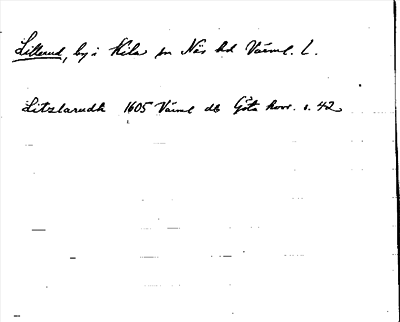 Lillerud, by i Kila sn Näs hd Värml. l.
Litzlarudh 1605 Värml db Göta hovr. s. 42